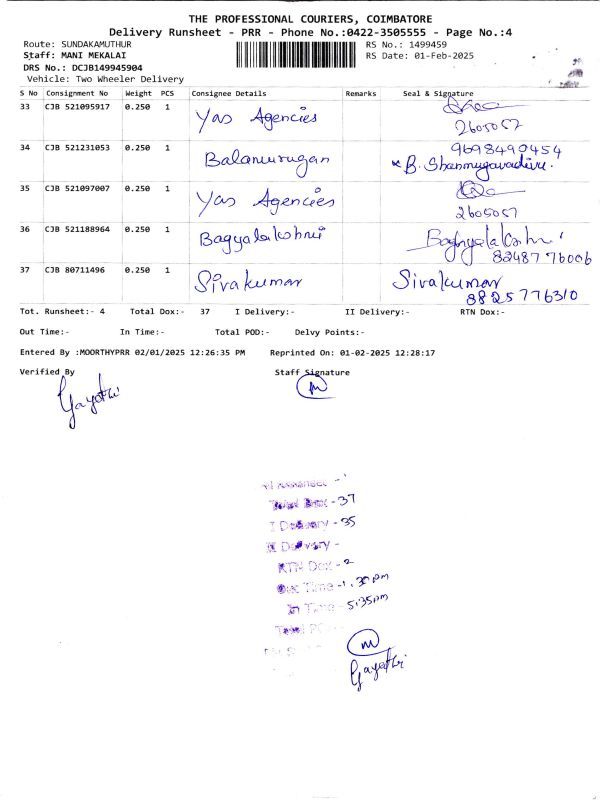 THE PROFESSIONAL COURIERS, COIMBATORE
Delivery Runsheet - PRR - Phone No.:0422-3505555 - Page No.:4
Route: SUNDAKAMUTHUR
RS No.: 1499459
Staff: MANI MEKALAI
RS Date: 01-Feb-2025
DRS No.: DCJB149945904
Vehicle: Two Wheeler Delivery
S No Consignment No Weight PCS Consignee Details Remarks Seal & Signature
33 CJB 521095917 0.250 1 Yas Agencies
2605057
34 CJB 521231053 0.250 1 Balamurugan 9698490454
B. Shanmugavadivu.
35 CJB 521097007 0.250 1 Yas Agencies
2605057
36 CJB 521188964 0.250 1 Bagyalakshmi Bagyalakshmi
82487 76006
37 CJB 80711496 0.250 1 Sivakumar Sivakumar
8825776310
Tot. Runsheet:- 4 Total Dox:- 37 I Delivery:- II Delivery:- RTN Dox:-
Out Time:- In Time:- Total POD:- Delvy Points:-
Entered By :MOORTHYPRR 02/01/2025 12:26:35 PM Reprinted On: 01-02-2025 12:28:17
Verified By Staff Signature
Gayathri m
Total Dox - 37
I Delivery - 35
II Delivery -
RTN Dox - 2
Out Time - 1.30 pm
In Time - 5:35pm
m
Gayathri